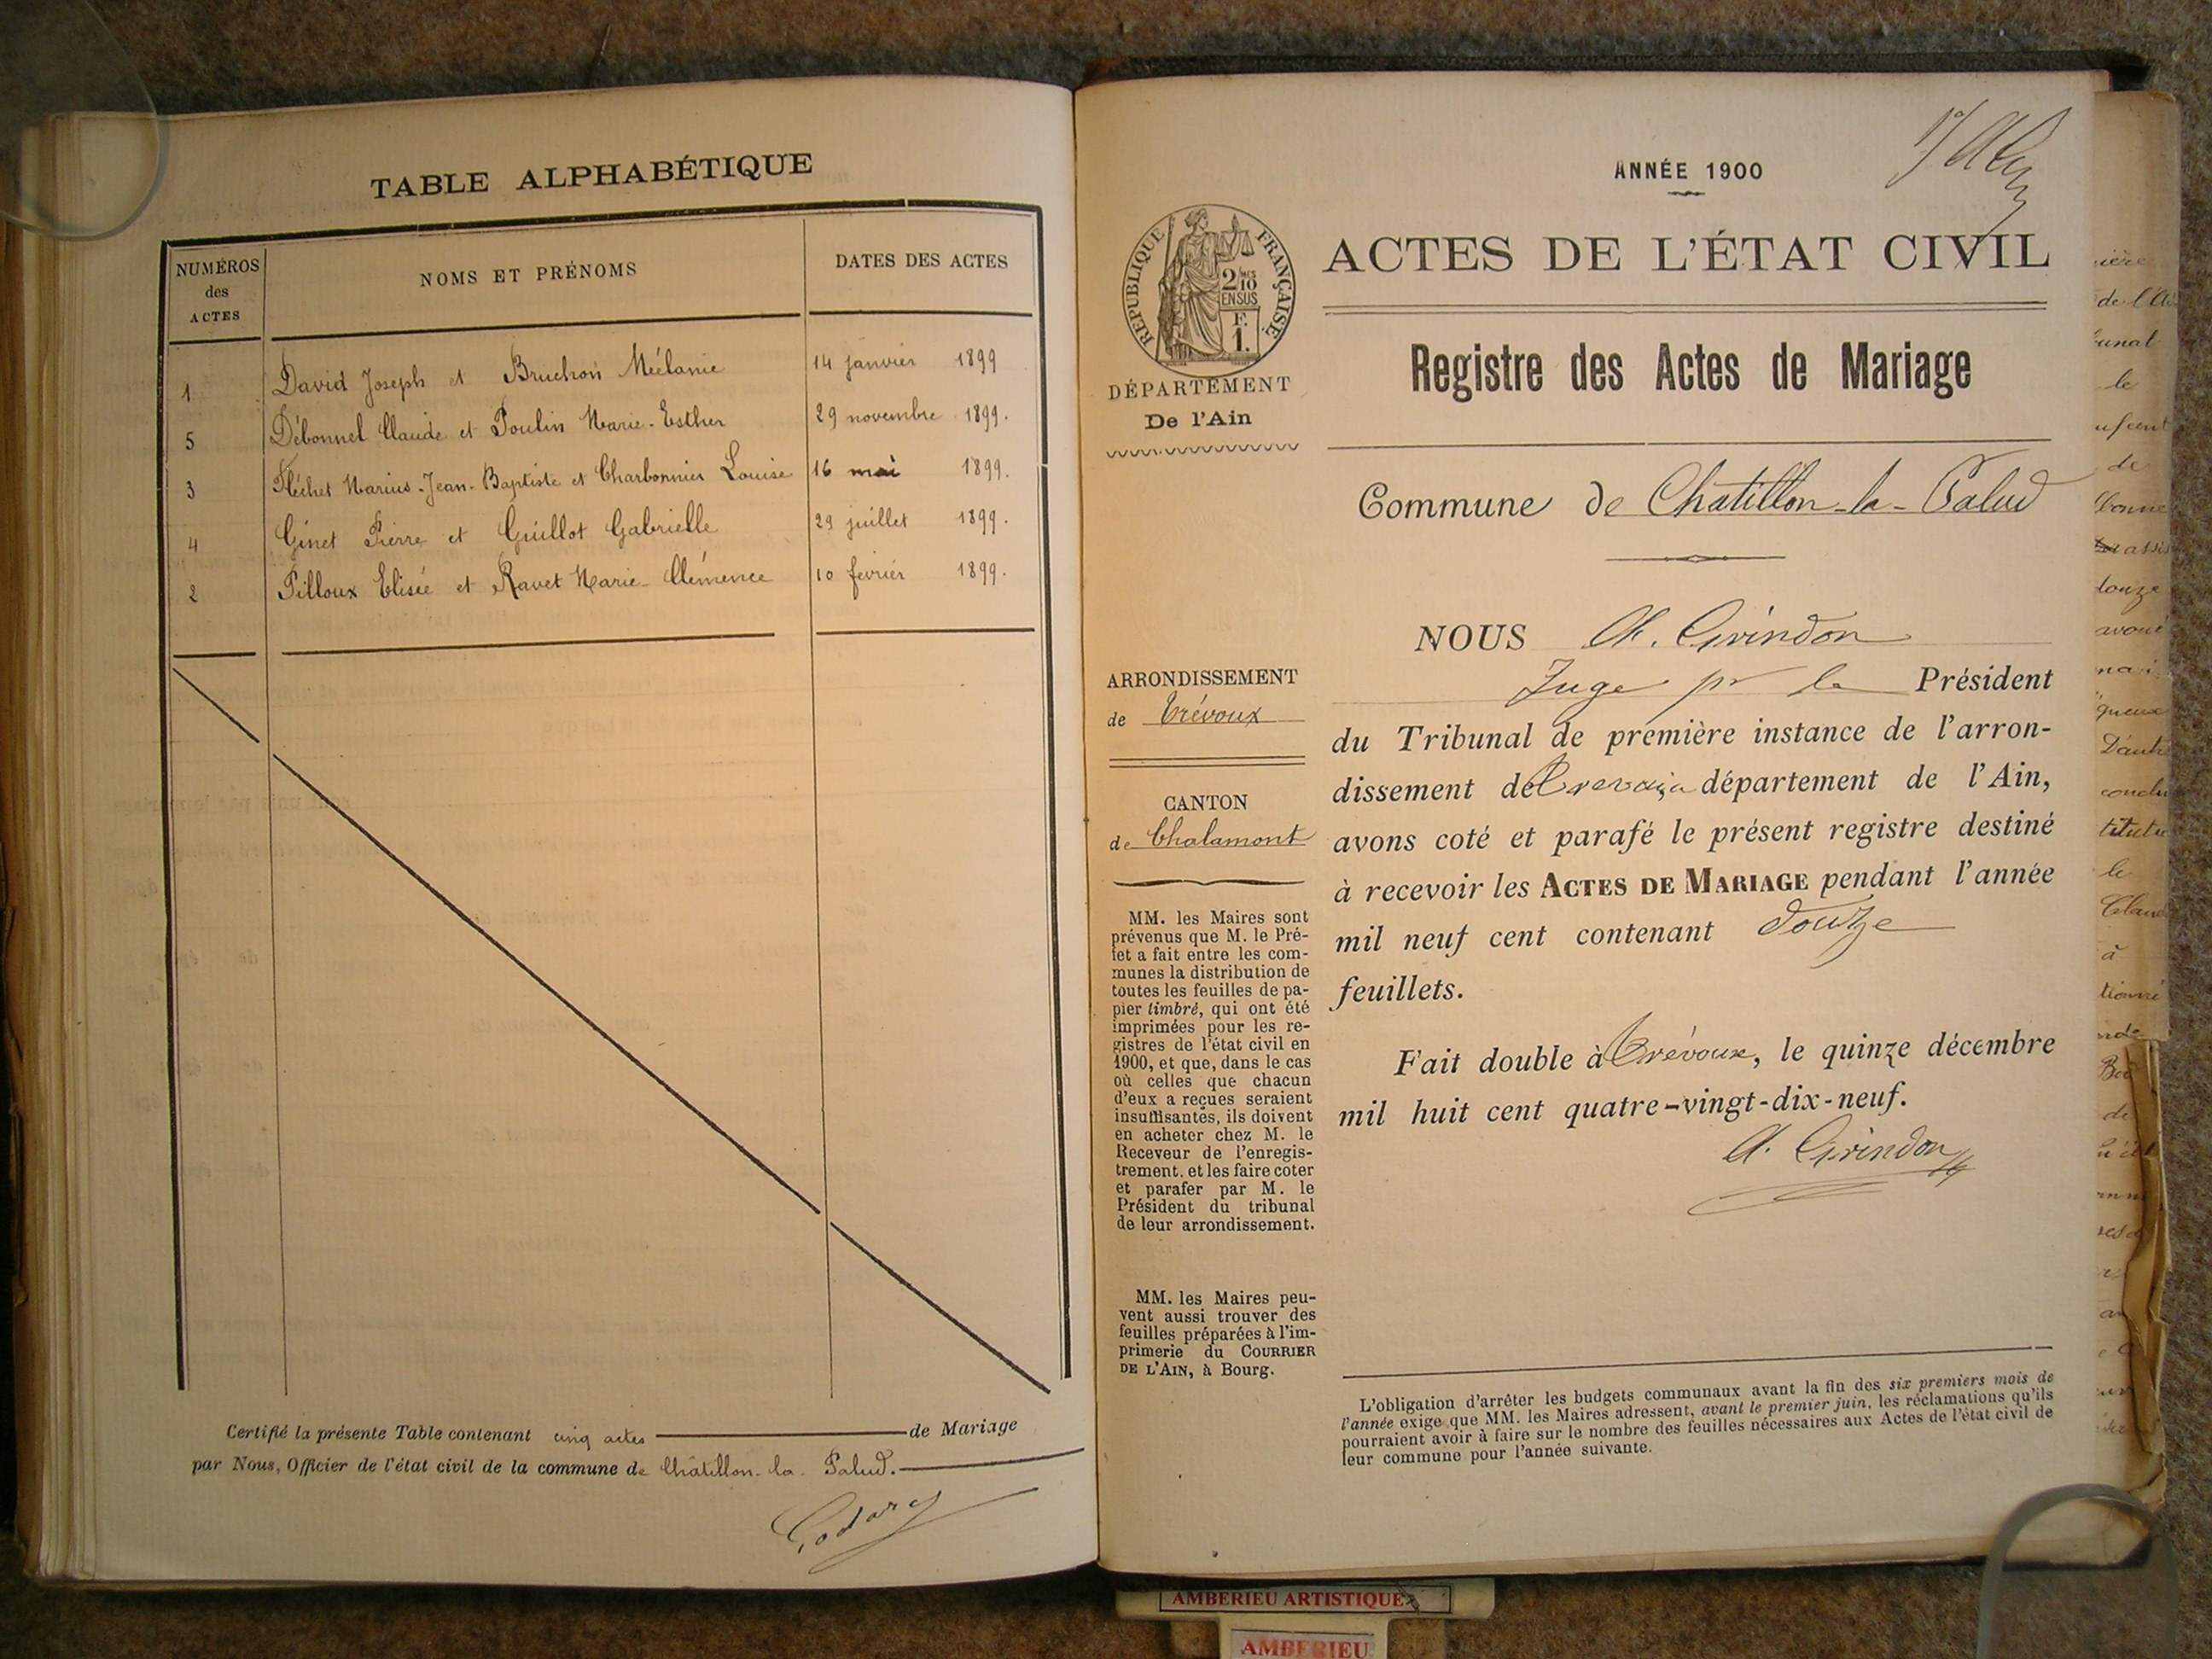 TABLE ALPHABÉTIQUE
NUMÉROS
des
ACTES
NOMS ET PRÉNOMS
DATES DES ACTES
1 David Joseph et Bruchon Mélanie 14 janvier 1899
5 Débonnel Claude et Poulin Marie-Esther 29 novembre 1899.
3 Fléchet Marius-Jean-Baptiste et Charbonnier Louise 16 mai 1899.
4 Ginet Pierre et Guillot Gabrielle 29 juillet 1899.
2 Pilloux Elisée et Ravet Marie-Clémence 10 février 1899.
Certifié la présente Table contenant cinq actes de Mariage
par Nous, Officier de l'état civil de la commune de Châtillon-la-Palud.
ANNÉE 1900
RÉPUBLIQUE FRANÇAISE
2/10
EN SUS
F.
1.
ACTES DE L'ÉTAT CIVIL
Registre des Actes de Mariage
DÉPARTEMENT
De l'Ain
Commune de Chatillon-la-Palud
ARRONDISSEMENT
de Trévoux
CANTON
de Chalamont
MM. les Maires sont
prévenus que M. le Pré-
fet a fait entre les com-
munes la distribution de
toutes les feuilles de pa-
pier timbré, qui ont été
imprimées pour les re-
gistres de l'état civil en
1900, et que, dans le cas
où celles que chacun
d'eux a reçues seraient
insuffisantes, ils doivent
en acheter chez M. le
Receveur de l'enregis-
trement. et les faire coter
et parafer par M. le
Président du tribunal
de leur arrondissement.
MM. les Maires peu-
vent aussi trouver des
feuilles préparées à l'im-
primerie du COURRIER
DE L'AIN, à Bourg.
NOUS Grindon
Juge pr le Président
du Tribunal de première instance de l'arron-
dissement de Trevoux département de l'Ain,
avons coté et parafé le présent registre destiné
à recevoir les ACTES DE MARIAGE pendant l'année
mil neuf cent contenant douze
feuillets.
Fait double à Trévoux, le quinze décembre
mil huit cent quatre-vingt-dix-neuf.
Grindon
L'obligation d'arrêter les budgets communaux avant la fin des six premiers mois de
l'année exige que MM. les Maires adressent, avant le premier juin, les réclamations qu'ils
pourraient avoir à faire sur le nombre des feuilles nécessaires aux Actes de l'état civil de
leur commune pour l'année suivante.
AMBERIEU ARTISTIQUE
AMBERIEU